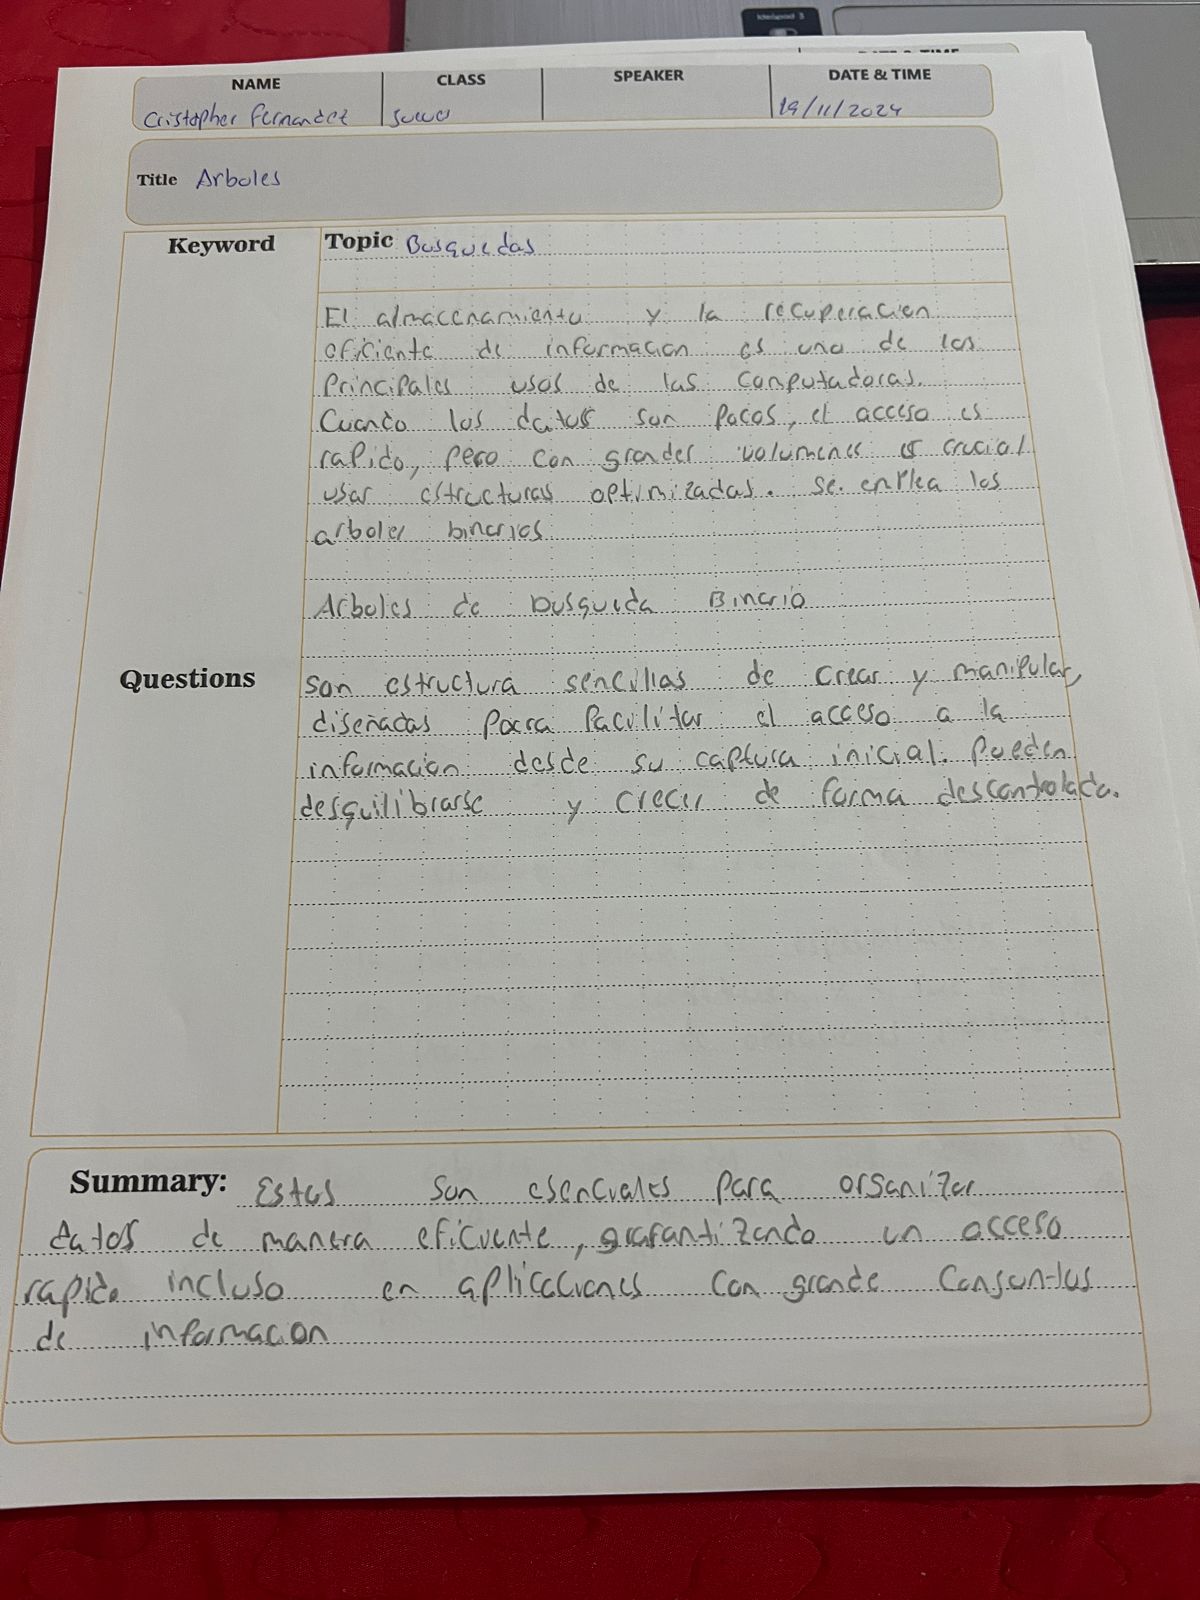 ideapad 3
DATE & TIME
NAME CLASS SPEAKER DATE & TIME
Cristopher Fernandez 19/11/2024
Title Arboles
Keyword Topic Busquedas
El almacenamiento y la recuperacion
eficiente de informacion es uno de los
principales usos de las computadoras.
Cuando los datos son pocos, el acceso es
rapido, pero con grandes volumenes es crucial
usar estructuras optimizadas. Se enplea los
arboles binarios
Arboles de busqueda Binario
Questions
son estructura sencillas de crear y manipular,
diseñadas para facilitar el acceso a la
informacion desde su captura inicial. Pueden
desquilibrarse y crecer de forma descontrolada.
Summary: Estas son esenciales para organizar
datos de manera eficiente, garantizando un acceso
rapido incluso en aplicaciones con grande conjuntos
de informacion